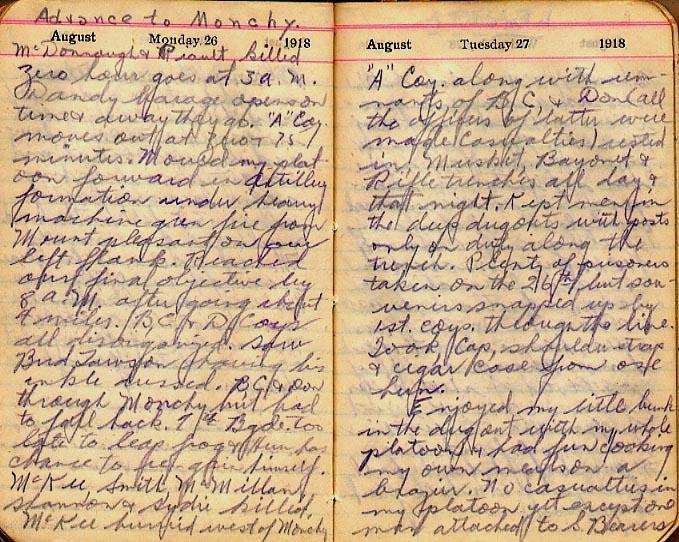 Advance to Monchy.
August Monday 26 1918
McDonnough & Pirault killed
Zero hour goes at 3 a.m.
Dandy barage opens on
time & away they go. "A" Coy.
moves out at zero + 75
minutes. Moved my plat-
oon forward in Artillery
formation under heavy
machine gun fire from
Mount pleasant on our
left flank. Reached
our final objective by
8 a.m. after going about
4 miles. B, C & D Coys
all disorganized. Saw
Bud Lawson having his
ankle dressed. B C & Don
through Monchy but had
to fall back. 7th Bgde. too
late to leap frog & Hun has
chance to himself.
McKee Smith, McMillan,
Shannon & killed.
McKee buried west of Monchy
August Tuesday 27 1918
"A" Coy. along with rem-
nants of B, C, & Don (all
the officers of latter were
made Casualties) rested
in Musket, Bayonet &
Rifle trenches all day &
that night. Kept men in
the deep dugouts with posts
only on duty along the
trench. Plenty of prisoners
taken on the 26th, but sou-
venirs snapped up by
1st. coys. through the line.
Took Cap, shoulder strap
& cigar case from one
hun.
Enjoyed my little bunk
in the dugout with my whole
platoon & had fun cooking
my own meals on a
brazier. No casualties in
my platoon yet except one
man attached to S. Bearers